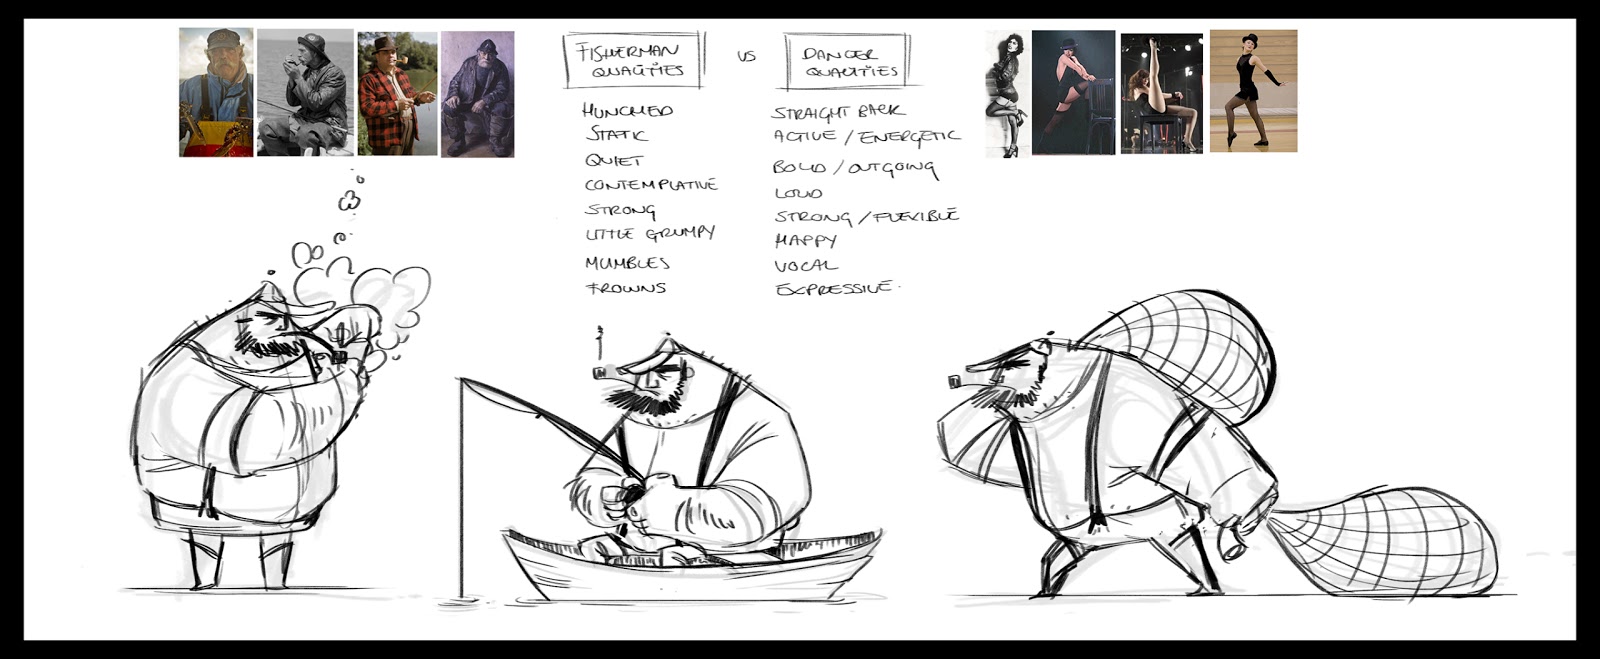 FISHERMAN
QUALITIES
VS
DANCER
QUALITIES
HUNCHED
STATIC
QUIET
CONTEMPLATIVE
STRONG
LITTLE GRUMPY
MUMBLES
FROWNS
STRAIGHT BACK
ACTIVE / ENERGETIC
BOLD / OUTGOING
LOUD
STRONG / FLEXIBLE
HAPPY
VOCAL
EXPRESSIVE.